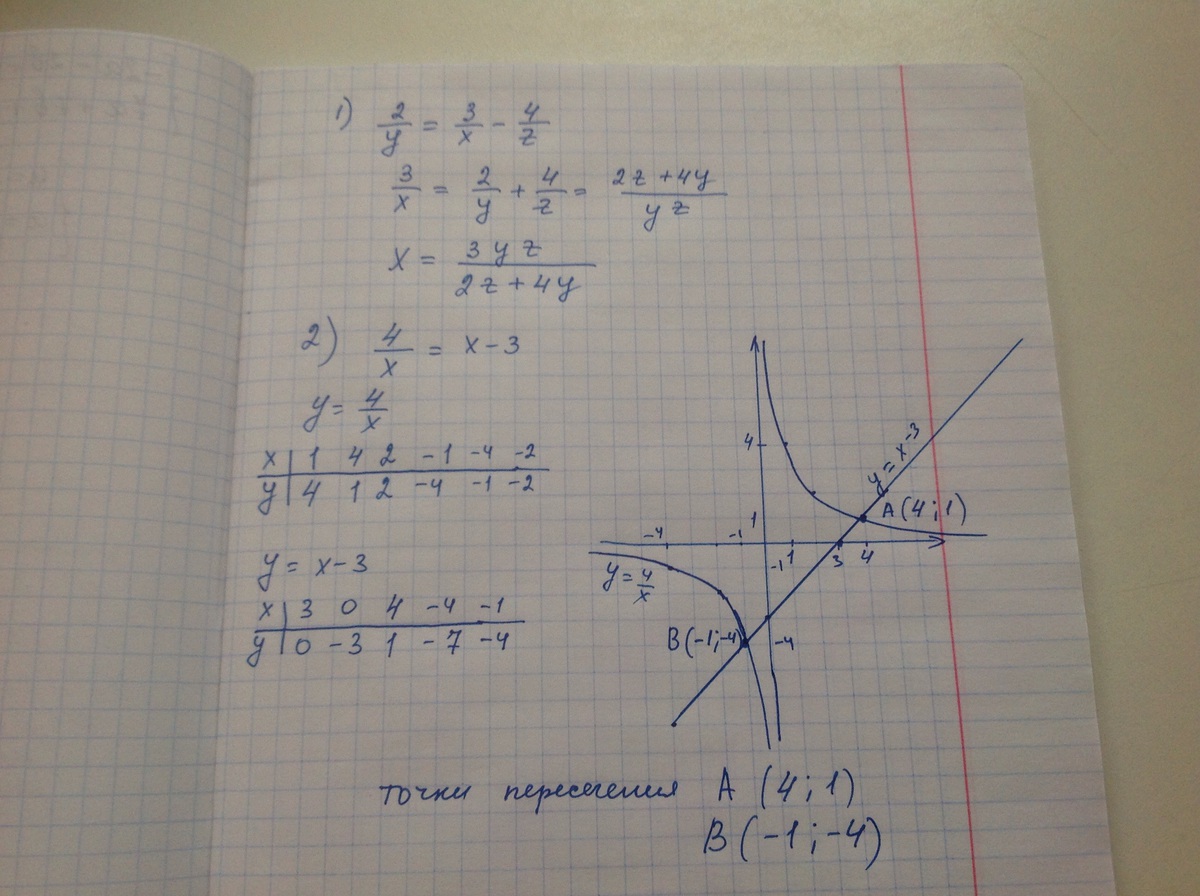 1) 2/y = 3/x - 4/z
3/x = 2/y + 4/z = (2z + 4y)/(yz)
x = 3yz/(2z + 4y)
2) 4/x = x - 3
y = 4/x
x | 1 4 2 -1 -4 -2
y | 4 1 2 -4 -1 -2
y = x - 3
x | 3 0 4 -4 -1
y | 0 -3 1 -7 -4
y = x - 3
4
A (4; 1)
1
-4 -1 -1 1 3 4
y = 4/x
B (-1; -4) -4
точки пересечения A (4; 1)
B (-1; -4)